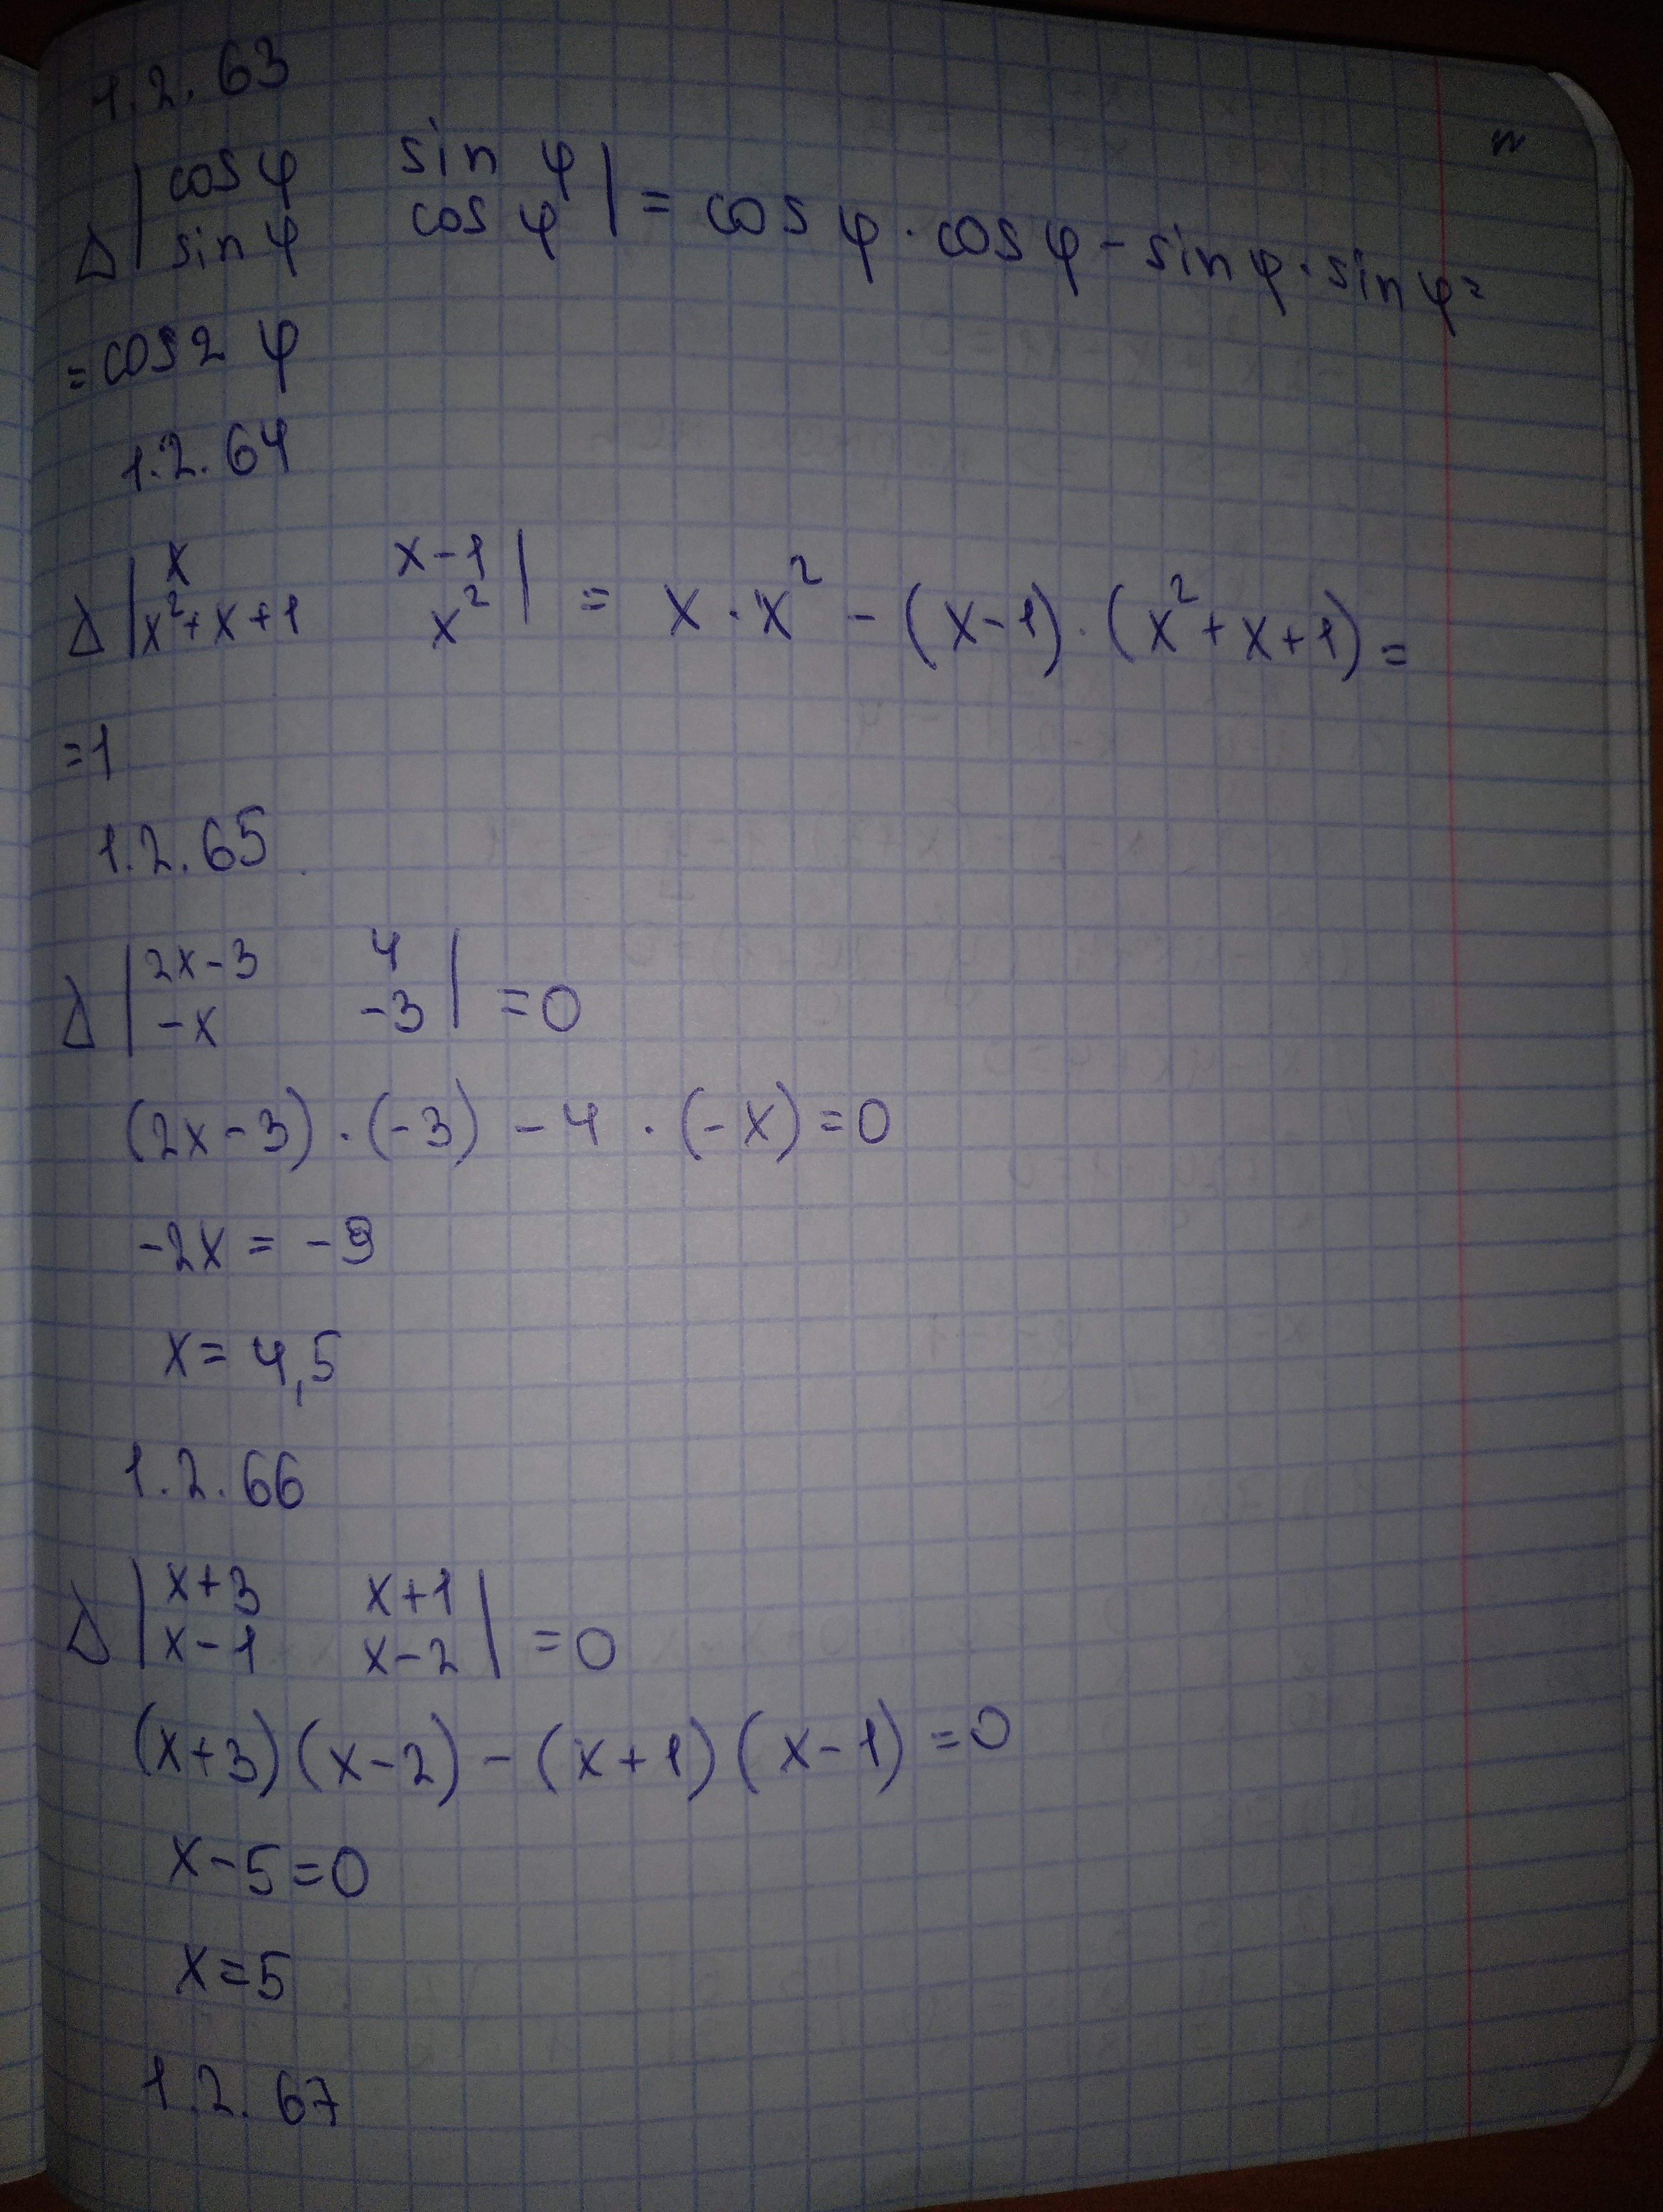 1.2.63
Δ | cos φ sin φ |
| sin φ cos φ | = cos φ · cos φ - sin φ · sin φ =
= cos 2 φ
1.2.64
Δ | x x-1 |
| x²+x+1 x² | = x · x² - (x-1) · (x²+x+1) =
=1
1.2.65
Δ | 2x-3 4 |
| -x -3 | = 0
(2x-3) · (-3) - 4 · (-x) = 0
-2x = -9
x = 4,5
1.2.66
Δ | x+3 x+1 |
| x-1 x-2 | = 0
(x+3) (x-2) - (x+1) (x-1) = 0
x-5=0
x=5
1.2.67